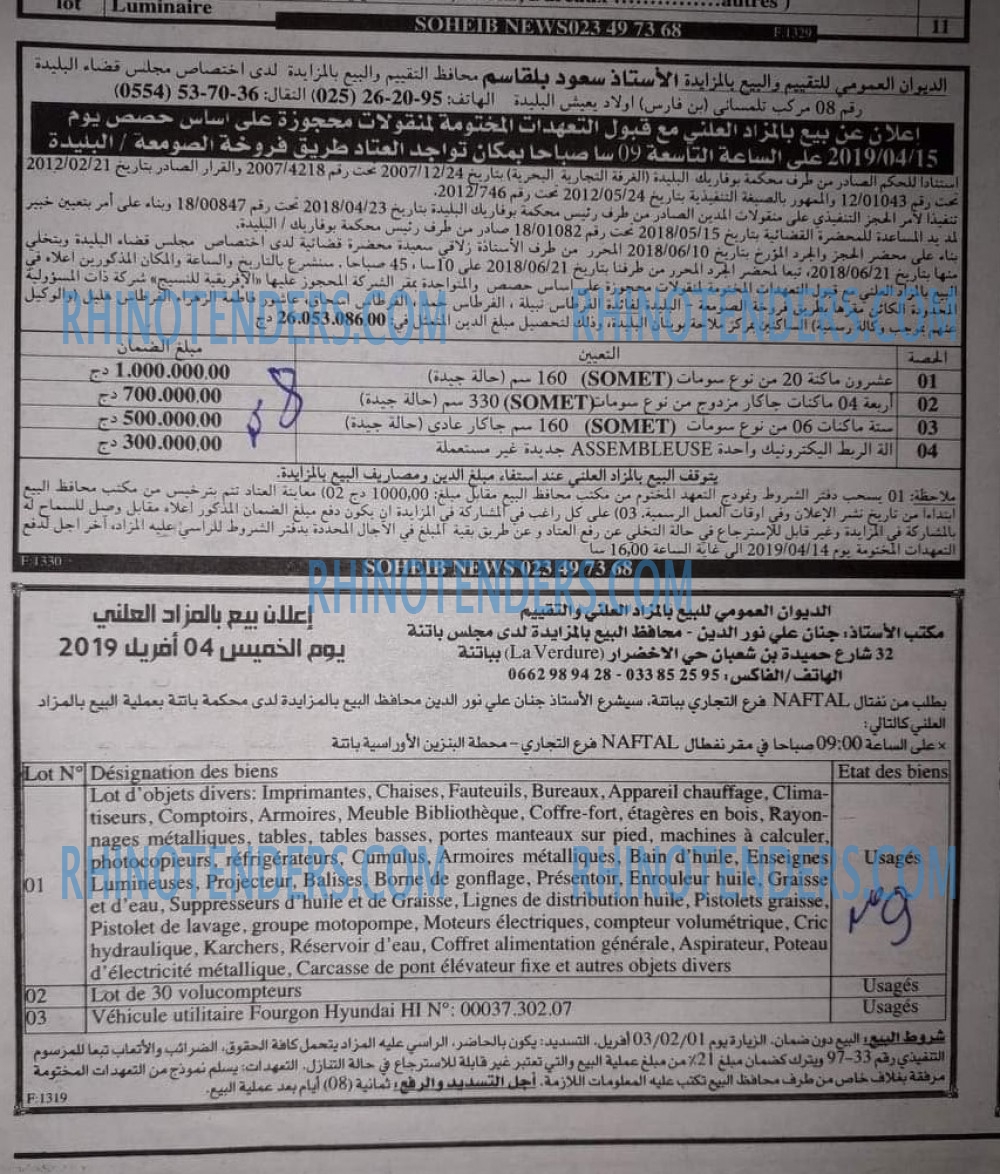 lot Luminaire
autres )
11
SOHEIB NEWS023 49 73 68
F:1329
الديوان العمومي للتقييم والبيع بالمزايدة الأستاذ سعود بلقاسم محافظ التقييم والبيع بالمزايدة لدى اختصاص مجلس قضاء البليدة
رقم 08 مركب تلمساني (بن فارس) اولاد يعيش البليدة الهاتف: 95-20-26 (025) النقال: 36-70-53 (0554)
إعلان عن بيع بالمزاد العلني مع قبول التعهدات المختومة لمنقولات محجوزة على اساس حصص يوم
2019/04/15 على الساعة التاسعة 09 سا صباحا بمكان تواجد العتاد طريق فروخة الصومعة / البليدة
استنادا للحكم الصادر من طرف محكمة بوفاريك البليدة (الغرفة التجارية البحرية) بتاريخ 2007/12/24 تحت رقم 2007/4218 والقرار الصادر بتاريخ 2012/02/21
تحت رقم 12/01043 والممهور بالصيغة التنفيذية بتاريخ 2012/05/24 تحت رقم 2012/746.
تنفيذا لأمر الحجز التنفيذي على منقولات المدين الصادر من طرف رئيس محكمة بوفاريك البليدة بتاريخ 2018/04/23 تحت رقم 18/00847 وبناء على أمر بتعيين خبير
لمد يد المساعدة للمحضرة القضائية بتاريخ 2018/05/15 تحت رقم 18/01082 صادر من طرف رئيس محكمة بوفاريك / البليدة.
بناء على محضر الحجز والجرد المؤرخ بتاريخ 2018/06/10 المحرر من طرف الأستاذة زلاقي سعيدة محضرة قضائية لدى اختصاص مجلس قضاء البليدة وبتخلي
منها بتاريخ 2018/06/21، تبعا لمحضر الجرد المحرر من طرفنا بتاريخ 2018/06/21 على 10سا ، 45 صباحا . سنشرع بالتاريخ والساعة والمكان المذكورين اعلاه في
البيع بالمزاد العلني مع قبول التعهدات المختومة لمنقولات محجوزة على أساس حصص والمتواجدة بمقر الشركة المحجوز عليها «الإفريقية للنسيج» شركة ذات المسؤولية
المحدودة الكائن مقرها بطريق فروخة الصومعة / البليدة لفائدة القرطاس نبيلة ، القرطاس القرطاس اسحاق عاشور فاطمة الزهراء القرطاس هليل (الوكيل
عنهم بموجب وكالة رسمية) الساكنين بمركز ملاحة بوينان البليدة، وذلك لتحصيل مبلغ الدين المتمثل في: 26.053.086.00 دج
الحصة التعيين مبلغ الضمان
01 عشرون ماكنة 20 من نوع سومات (SOMET) 160 سم (حالة جيدة) 1.000.000,00 دج
02 أربعة 04 ماكنات جاكار مزدوج من نوع سومات(SOMET) 330 سم (حالة جيدة) 700.000.00 دج
03 ستة ماكنات 06 من نوع سومات (SOMET) 160 سم جاكار عادي (حالة جيدة) 500.000.00 دج
04 الة الربط اليكترونيك واحدة ASSEMBLEUSE جديدة غير مستعملة 300.000.00 دج
يتوقف البيع بالمزاد العلني عند استفاء مبلغ الدين ومصاريف البيع بالمزايدة.
ملاحظة: 01 يسحب دفتر الشروط ونموذج التعهد المختوم من مكتب محافظ البيع مقابل مبلغ: 1000,00 دج 02) معاينة العتاد تتم بترخيص من مكتب محافظ البيع
ابتداءا من تاريخ نشر الإعلان وفي اوقات العمل الرسمية. 03) على كل راغب في المشاركة في المزايدة ان يكون دفع مبلغ الضمان المذكور اعلاه مقابل وصل للسماح له
بالمشاركة في المزايدة وغير قابل للإسترجاع في حالة التخلي عن رفع العتاد و عن طريق بقية المبلغ في الآجال المحددة بدفتر الشروط للراسي عليه المزاد، آخر اجل لدفع
التعهدات المختومة يوم 2019/04/14 الى غاية الساعة 16,00 سا
F:1330
SOHEIB NEWS 023 49 73 68
الديوان العمومي للبيع بالمزاد العلني والتقييم
مكتب الأستاذ: جنان علي نور الدين - محافظ البيع بالمزايدة لدى مجلس باتنة
32 شارع حميدة بن شعبان حي الاخضرار (La Verdure) بباتنة
الهاتف/الفاكس: 95 25 85 033 - 28 94 98 0662
إعلان بيع بالمزاد العلني
يوم الخميس 04 أفريل 2019
بطلب من نفتال NAFTAL فرع التجاري بباتنة، سيشرع الأستاذ جنان علي نور الدين محافظ البيع بالمزايدة لدى محكمة باتنة بعملية البيع بالمزاد
العلني كالتالي:
× على الساعة 09:00 صباحا في مقر نفطال NAFTAL فرع التجاري - محطة البنزين الأوراسية باتنة
Lot N° Désignation des biens Etat des biens
01 Lot d'objets divers: Imprimantes, Chaises, Fauteuils, Bureaux, Appareil chauffage, Clima-
tiseurs, Comptoirs, Armoires, Meuble Bibliothèque, Coffre-fort, étagères en bois, Rayon-
nages métalliques, tables, tables basses, portes manteaux sur pied, machines à calculer,
photocopieurs, réfrigérateurs, Cumulus, Armoires métalliques, Bain d'huile, Enseignes Usagés
Lumineuses, Projecteur, Balises, Borne de gonflage, Présentoir, Enrouleur huile, Graisse
et d'eau, Suppresseurs d'huile et de Graisse, Lignes de distribution huile, Pistolets graisse,
Pistolet de lavage, groupe motopompe, Moteurs électriques, compteur volumétrique, Cric
hydraulique, Karchers, Réservoir d'eau, Coffret alimentation générale, Aspirateur, Poteau
d'électricité métallique, Carcasse de pont élévateur fixe et autres objets divers
02 Lot de 30 volucompteurs Usagés
03 Véhicule utilitaire Fourgon Hyundai HI N°: 00037.302.07 Usagés
شروط البيع: البيع دون ضمان. الزيارة يوم 03/02/01 أفريل. التسديد: يكون بالحاضر، الراسي عليه المزاد يتحمل كافة الحقوق، الضرائب والأتعاب تبعا للمرسوم
التنفيذي رقم 33-97 ويترك كضمان مبلغ 21% من مبلغ عملية البيع والتي تعتبر غير قابلة للاسترجاع في حالة التنازل. التعهدات: يسلم نموذج من التعهدات المختومة
مرفقة بغلاف خاص من طرف محافظ البيع تكتب عليه المعلومات اللازمة. أجل التسديد والرفع: ثمانية (08) أيام بعد عملية البيع.
F:1319
RHINOTENDERS.COM RHINOTENDERS.COM
RHINOTENDERS.COM
RHINOTENDERS.COM RHINOTENDERS.COM